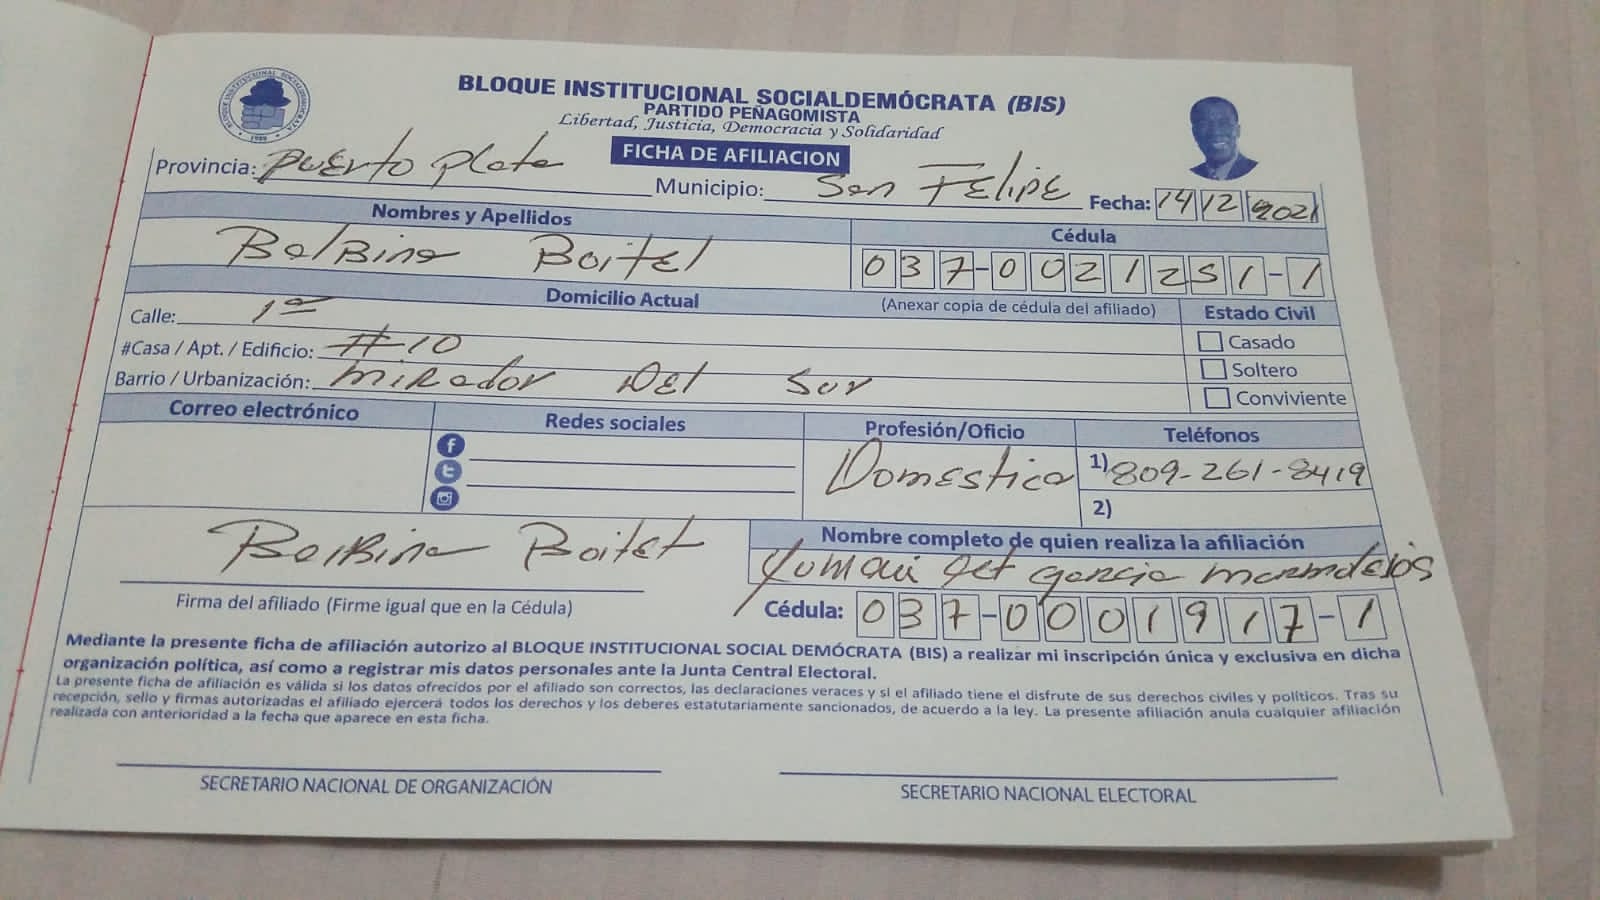 BLOQUE INSTITUCIONAL SOCIALDEMÓCRATA (BIS)
PARTIDO PEÑAGOMISTA
Libertad, Justicia, Democracia y Solidaridad
FICHA DE AFILIACION
BLOQUE INSTITUCIONAL SOCIALDEMOCRATA
Provincia: Puerto Plata Municipio: San Felipe Fecha: 14/12/2021
Nombres y Apellidos Cédula
Balbina Boitel 037-0021251-1
Domicilio Actual (Anexar copia de cédula del afiliado) Estado Civil
Calle: 1ra
Casado
#Casa / Apt. / Edificio: #10
Soltero
Barrio / Urbanización: Mirador Del Sur
Conviviente
Correo electrónico Redes sociales Profesión/Oficio Teléfonos
Domestica 1) 809-261-8419
2)
Balbina Boitel
Nombre completo de quien realiza la afiliación
garcia
Firma del afiliado (Firme igual que en la Cédula) Cédula: 037-0001917-1
Mediante la presente ficha de afiliación autorizo al BLOQUE INSTITUCIONAL SOCIAL DEMÓCRATA (BIS) a realizar mi inscripción única y exclusiva en dicha
organización política, así como a registrar mis datos personales ante la Junta Central Electoral.
La presente ficha de afiliación es válida si los datos ofrecidos por el afiliado son correctos, las declaraciones veraces y si el afiliado tiene el disfrute de sus derechos civiles y políticos. Tras su
recepción, sello y firmas autorizadas el afiliado ejercerá todos los derechos y los deberes estatutariamente sancionados, de acuerdo a la ley. La presente afiliación anula cualquier afiliación
realizada con anterioridad a la fecha que aparece en esta ficha.
SECRETARIO NACIONAL DE ORGANIZACIÓN SECRETARIO NACIONAL ELECTORAL